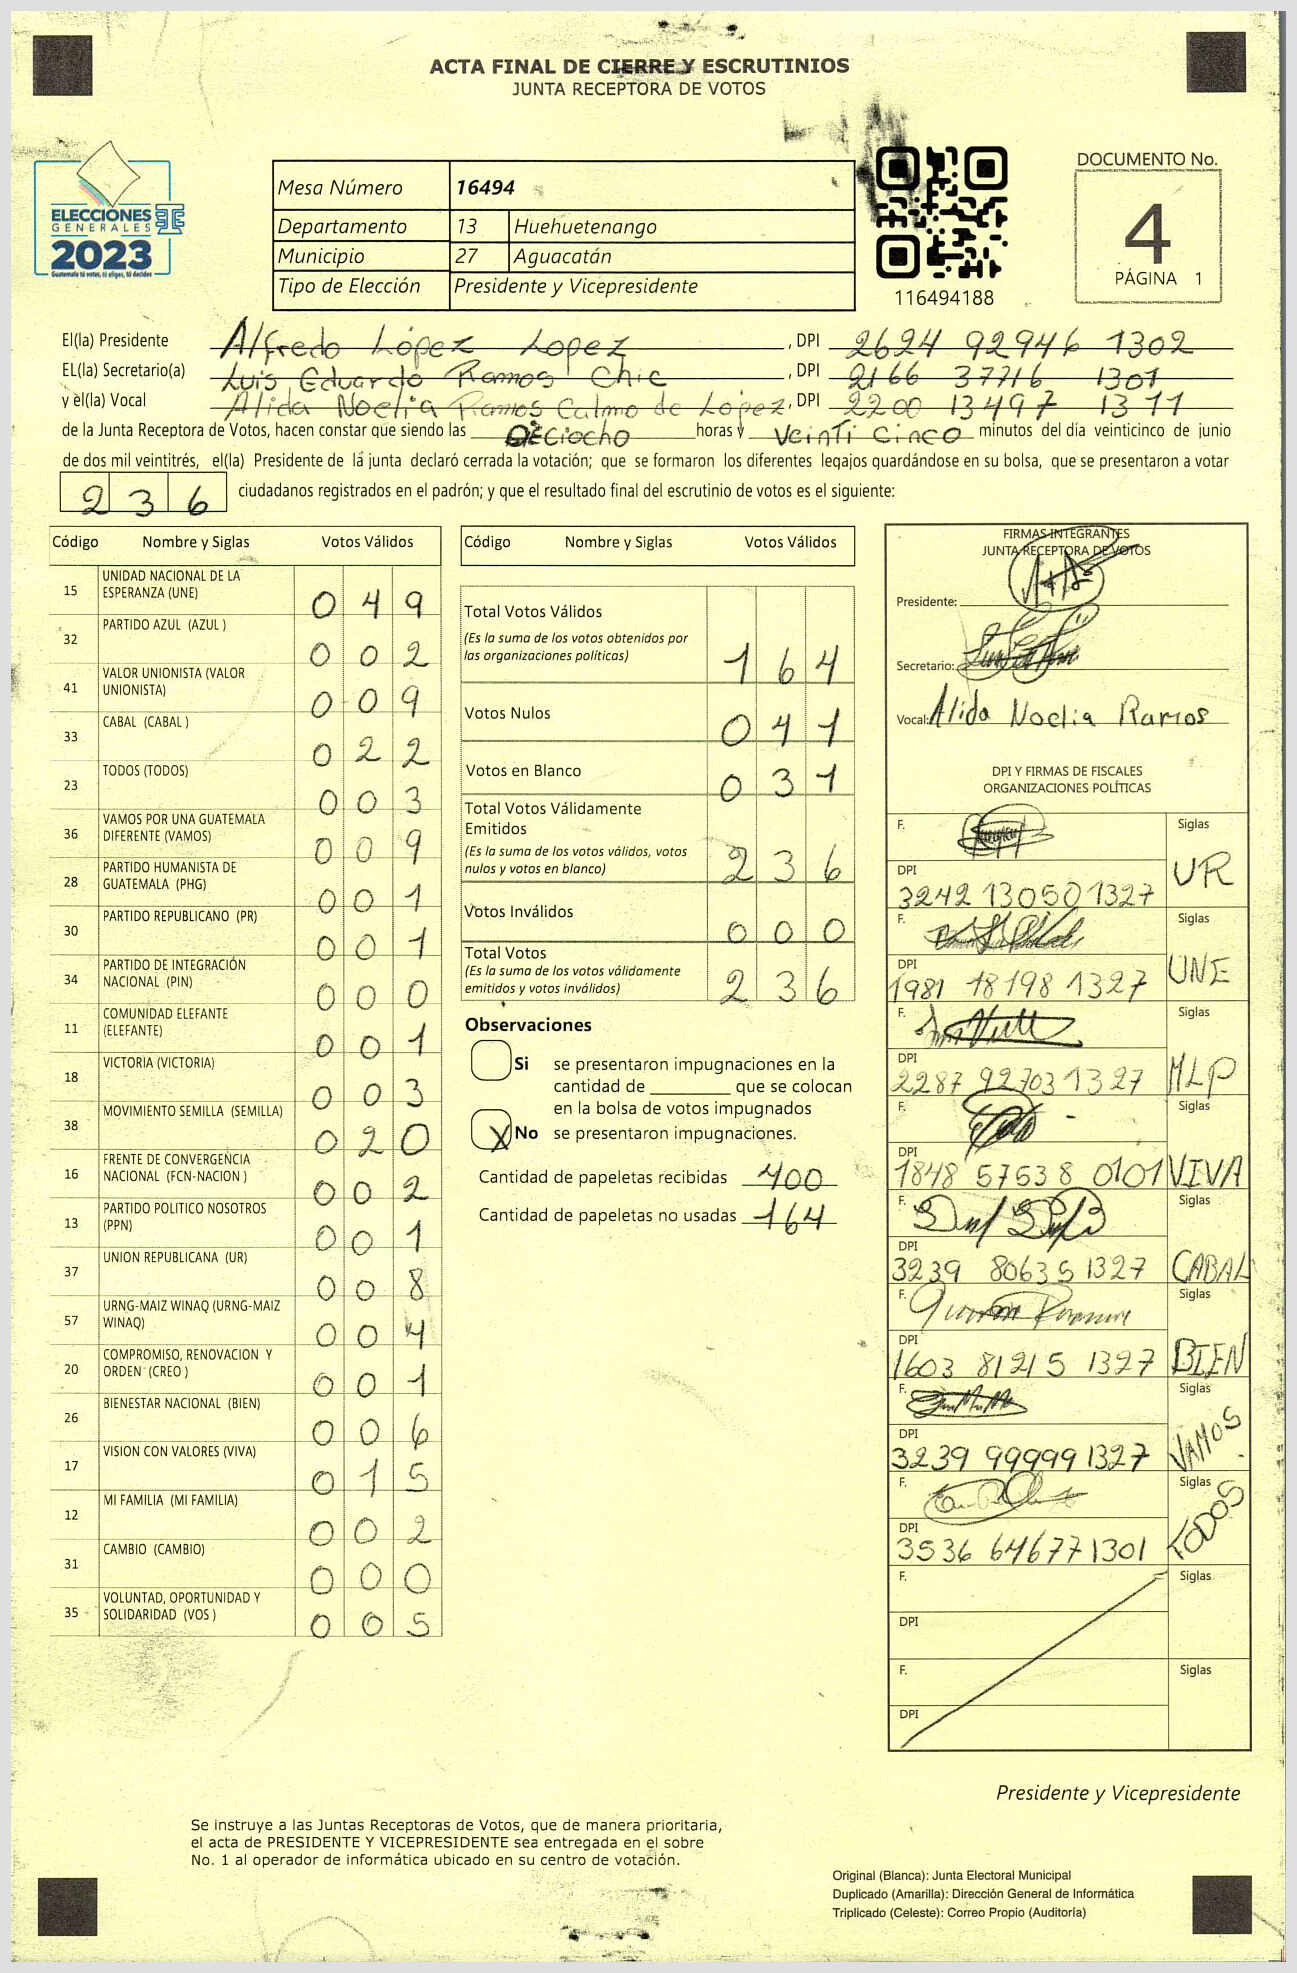 ACTA FINAL DE CIERRE Y ESCRUTINIOS
JUNTA RECEPTORA DE VOTOS
ELECCIONES
GENERALES
2023
Guatemala tú votas, tú eliges, tú decides
Mesa Número 16494
Departamento 13 Huehuetenango
Municipio 27 Aguacatán
Tipo de Elección Presidente y Vicepresidente
116494188
DOCUMENTO No.
4
PÁGINA 1
El(la) Presidente Alfredo López Lopez, DPI 2624 92946 1302
EL(la) Secretario(a) Luis Eduardo Ramos Chic, DPI 2166 37716 1301
y el(la) Vocal Alida Noelia Ramos Calmo de López, DPI 2200 13497 1311
de la Junta Receptora de Votos, hacen constar que siendo las Dieciocho horas y Veinti cinco minutos del día veinticinco de junio
de dos mil veintitrés, el(la) Presidente de la junta declaró cerrada la votación; que se formaron los diferentes legajos guardándose en su bolsa, que se presentaron a votar
236 ciudadanos registrados en el padrón; y que el resultado final del escrutinio de votos es el siguiente:
Código Nombre y Siglas Votos Válidos
15 UNIDAD NACIONAL DE LA ESPERANZA (UNE) 049
32 PARTIDO AZUL (AZUL ) 002
41 VALOR UNIONISTA (VALOR UNIONISTA) 009
33 CABAL (CABAL ) 022
23 TODOS (TODOS) 003
36 VAMOS POR UNA GUATEMALA DIFERENTE (VAMOS) 009
28 PARTIDO HUMANISTA DE GUATEMALA (PHG) 001
30 PARTIDO REPUBLICANO (PR) 001
34 PARTIDO DE INTEGRACIÓN NACIONAL (PIN) 000
11 COMUNIDAD ELEFANTE (ELEFANTE) 001
18 VICTORIA (VICTORIA) 003
38 MOVIMIENTO SEMILLA (SEMILLA) 020
16 FRENTE DE CONVERGENCIA NACIONAL (FCN-NACION ) 002
13 PARTIDO POLITICO NOSOTROS (PPN) 001
37 UNION REPUBLICANA (UR) 008
57 URNG-MAIZ WINAQ (URNG-MAIZ WINAQ) 004
20 COMPROMISO, RENOVACION Y ORDEN (CREO ) 001
26 BIENESTAR NACIONAL (BIEN) 006
17 VISION CON VALORES (VIVA) 015
12 MI FAMILIA (MI FAMILIA) 002
31 CAMBIO (CAMBIO) 000
35 VOLUNTAD, OPORTUNIDAD Y SOLIDARIDAD (VOS ) 005
Código Nombre y Siglas Votos Válidos
Total Votos Válidos 164
(Es la suma de los votos obtenidos por
las organizaciones políticas)
Votos Nulos 041
Votos en Blanco 031
Total Votos Válidamente
Emitidos 236
(Es la suma de los votos válidos, votos
nulos y votos en blanco)
Votos Inválidos 000
Total Votos 236
(Es la suma de los votos válidamente
emitidos y votos inválidos)
Observaciones
Si se presentaron impugnaciones en la
cantidad de ________ que se colocan
en la bolsa de votos impugnados
X No se presentaron impugnaciones.
Cantidad de papeletas recibidas 400
Cantidad de papeletas no usadas 164
FIRMAS INTEGRANTES
JUNTA RECEPTORA DE VOTOS
Presidente:
Secretario:
Vocal: Alida Noelia Ramos
DPI Y FIRMAS DE FISCALES
ORGANIZACIONES POLÍTICAS
F. Siglas
DPI UR
3242 13050 1327
F. Siglas
DPI UNE
1981 18198 1327
F. Siglas
DPI MLP
2287 92703 1327
F. Siglas
DPI VIVA
1848 57538 0101
F. Siglas
DPI CABAL
3239 80635 1327
F. Siglas
DPI BIEN
1603 81215 1327
F. Siglas
DPI VAMOS
3239 99999 1327
F. Siglas
DPI TODOS
3536 64677 1301
F. Siglas
DPI
F. Siglas
DPI
Presidente y Vicepresidente
Se instruye a las Juntas Receptoras de Votos, que de manera prioritaria,
el acta de PRESIDENTE Y VICEPRESIDENTE sea entregada en el sobre
No. 1 al operador de informática ubicado en su centro de votación.
Original (Blanca): Junta Electoral Municipal
Duplicado (Amarilla): Dirección General de Informática
Triplicado (Celeste): Correo Propio (Auditoría)